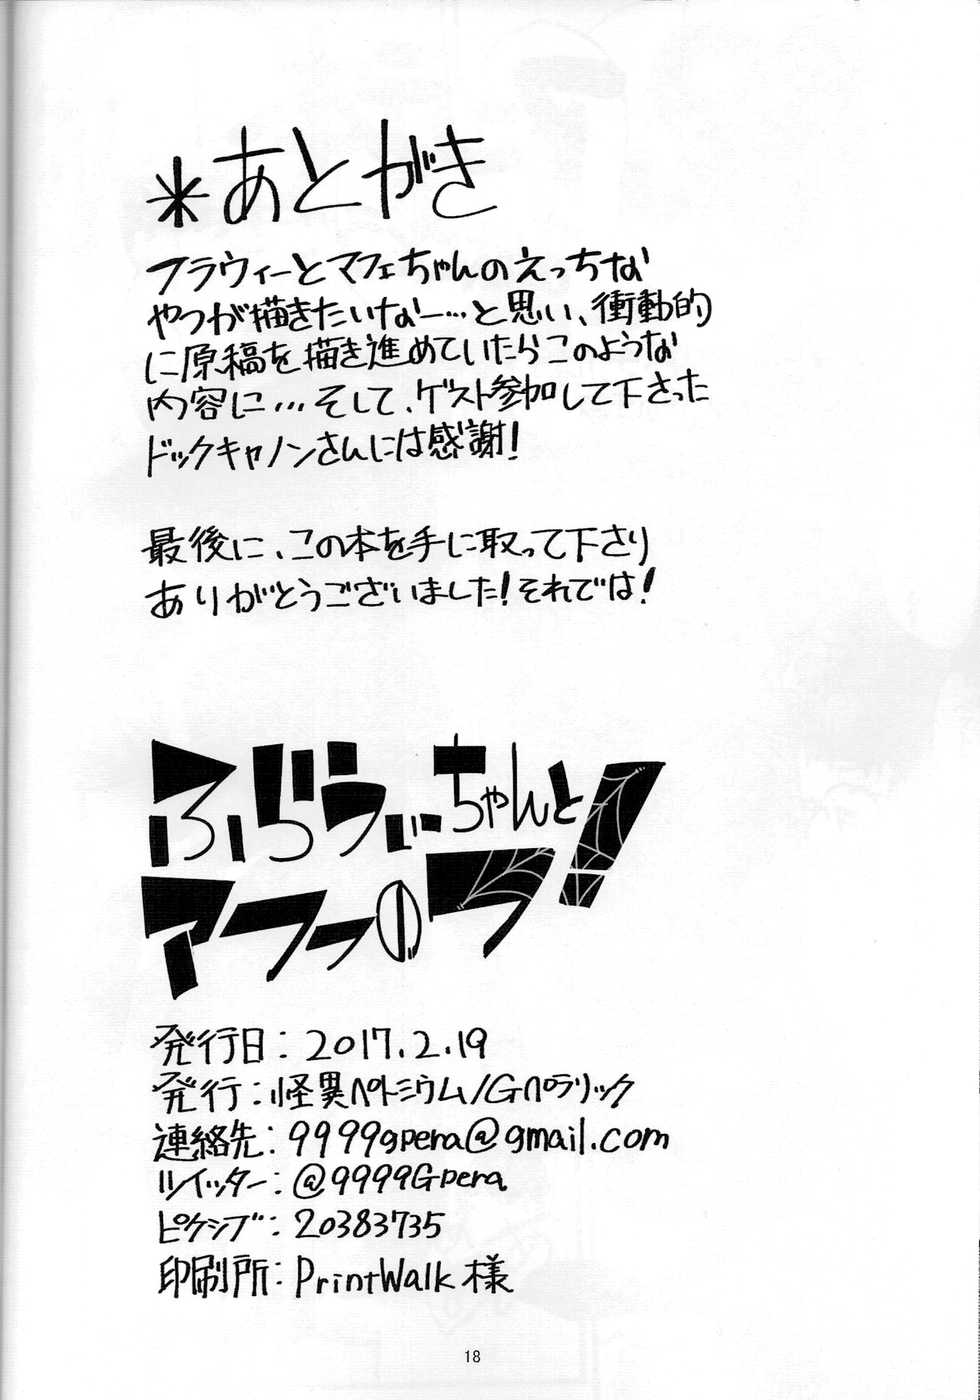 *あとがき
フラウィーとマフェちゃんのえっちな
やつが描きたいなー…と思い、衝動的
に原稿を描き進めていたらこのような
内容に…そして、ゲスト参加して下さった
ドックキャノンさんには感謝!
最後に、この本を手に取って下さり
ありがとうございました!それでは!
ふらうぃーちゃんと!
アフーのラ
発行日:2017.2.19
発行:怪異ペトミウム/Gペラリック
連絡先:9999gpera@gmail.com
ツイッター:@9999Gpera
ピクシブ:20383735
印刷所:PrintWalk様
18